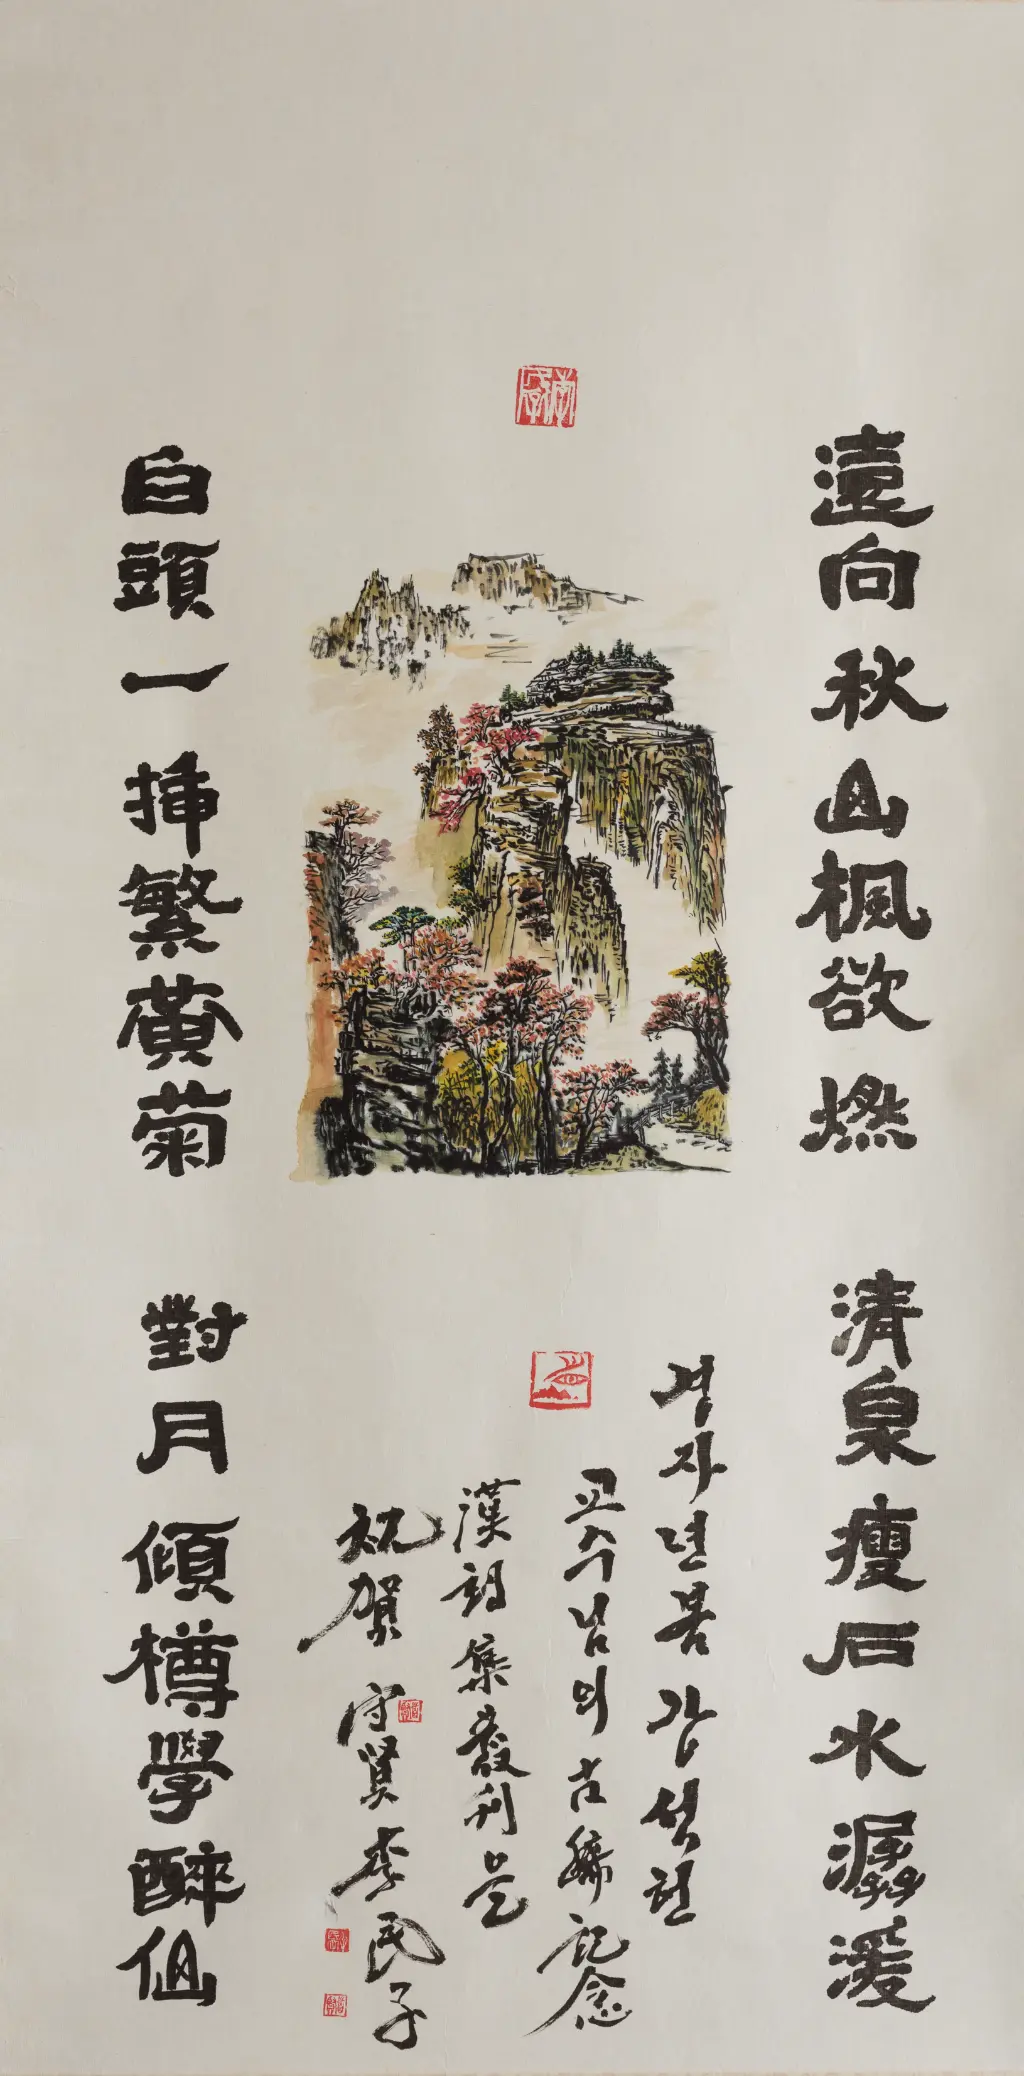 遠向秋山楓欲燃
清泉瘦石水潺湲
白頭一揷繁黃菊
對月傾樽學醉仙
경자년봄 강성헌
교수님의 古稀 記念
漢詩集 發刊을
祝賀 守賢 李民子